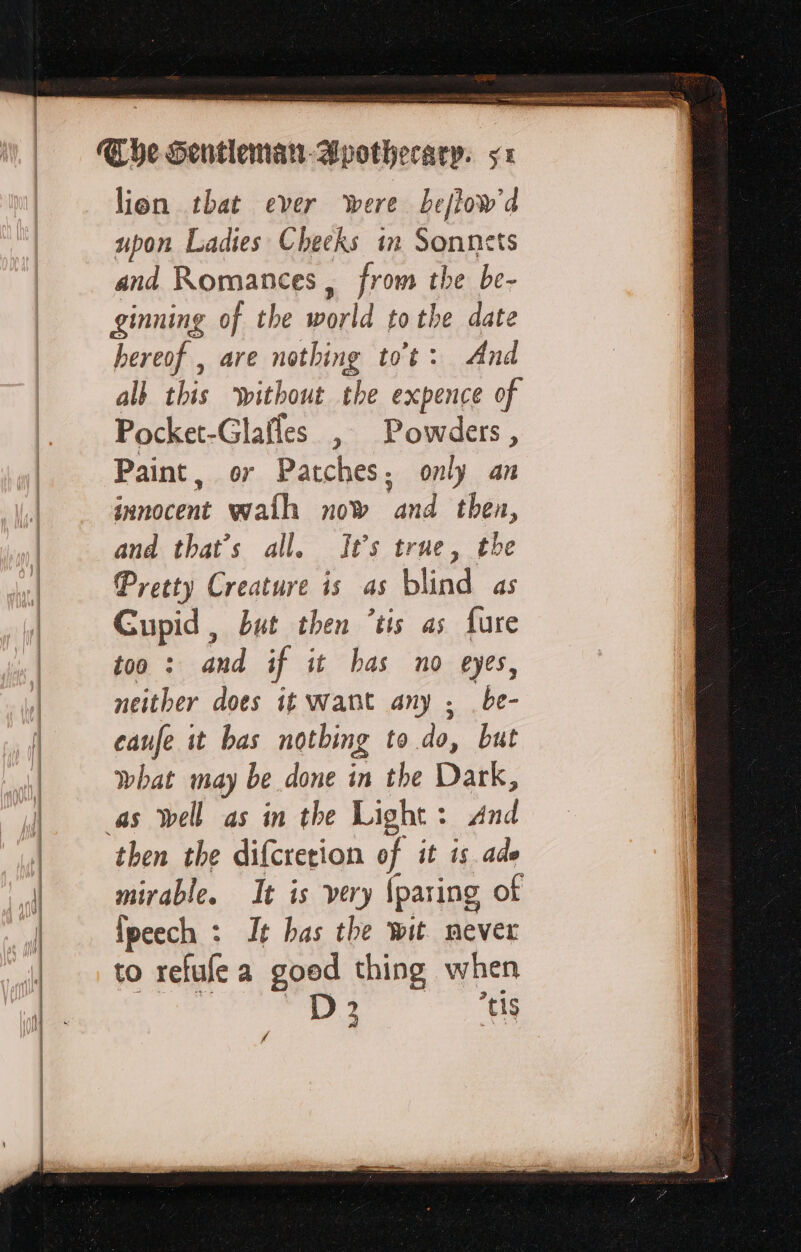 The Gentleman-Apothecary. 51
lion that ever were beſtow'd
upon Ladies Cheeks in Sonnets
and Romances, from the be-
ginning of the world to the date
hereof, are nothing to't: And
all this without the expence of
Pocket-Glaſſes, Powders,
Paint, or Patches; only an
innocent waſh now and then,
and that's all. It's true, the
Pretty Creature is as blind as
Cupid, but then 'tis as ſure
too: and if it has no eyes,
neither does it want any; be-
cauſe it has nothing to do, but
what may be done in the Dark,
as well as in the Light: And
then the diſcretion of it is ad-
mirable. It is very ſparing of
ſpeech: It has the wit never
to refuſe a good thing when
D 3 'tis